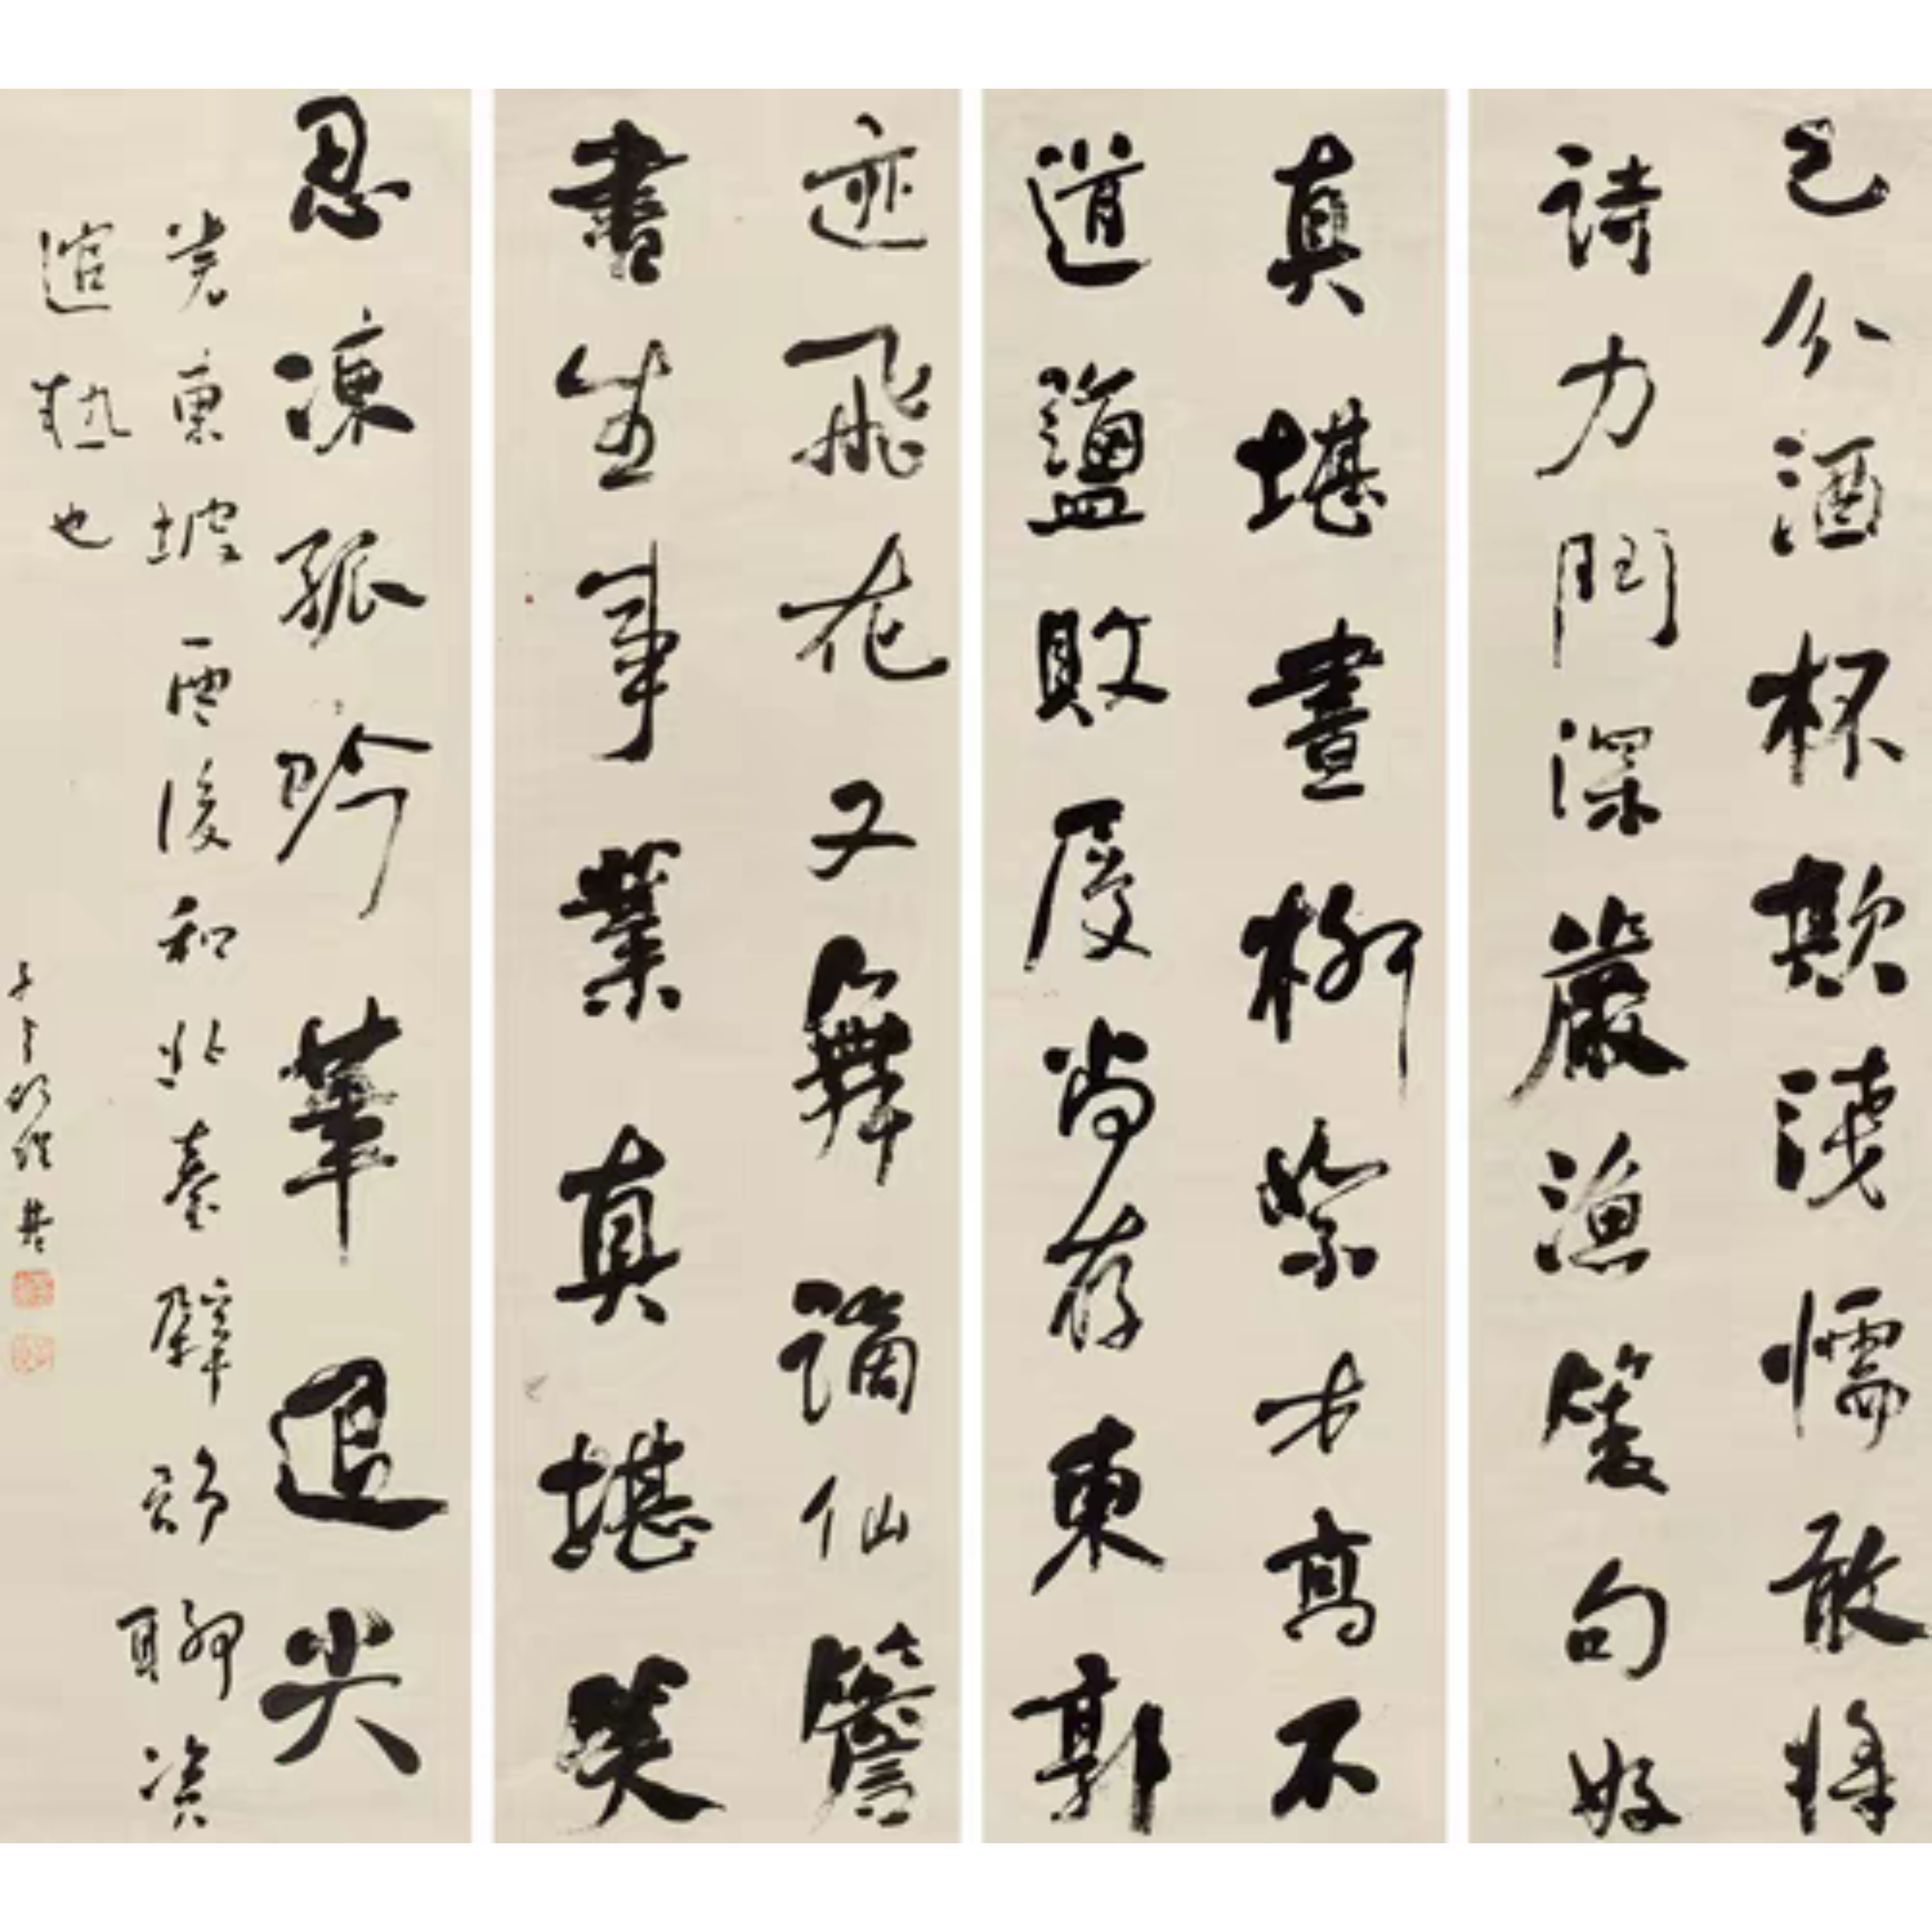 已分酒杯欺淺懦敢將
詩力鬥深嚴漁蓑句好
真堪畫柳絮才高不
道鹽敗履尚存東郭
迹飛花又舞謫仙簷
書生事業真堪笑
忍凍孤吟筆退尖
東坡雪後和北臺壁韵聊資
逭熱也
子貞何紹基